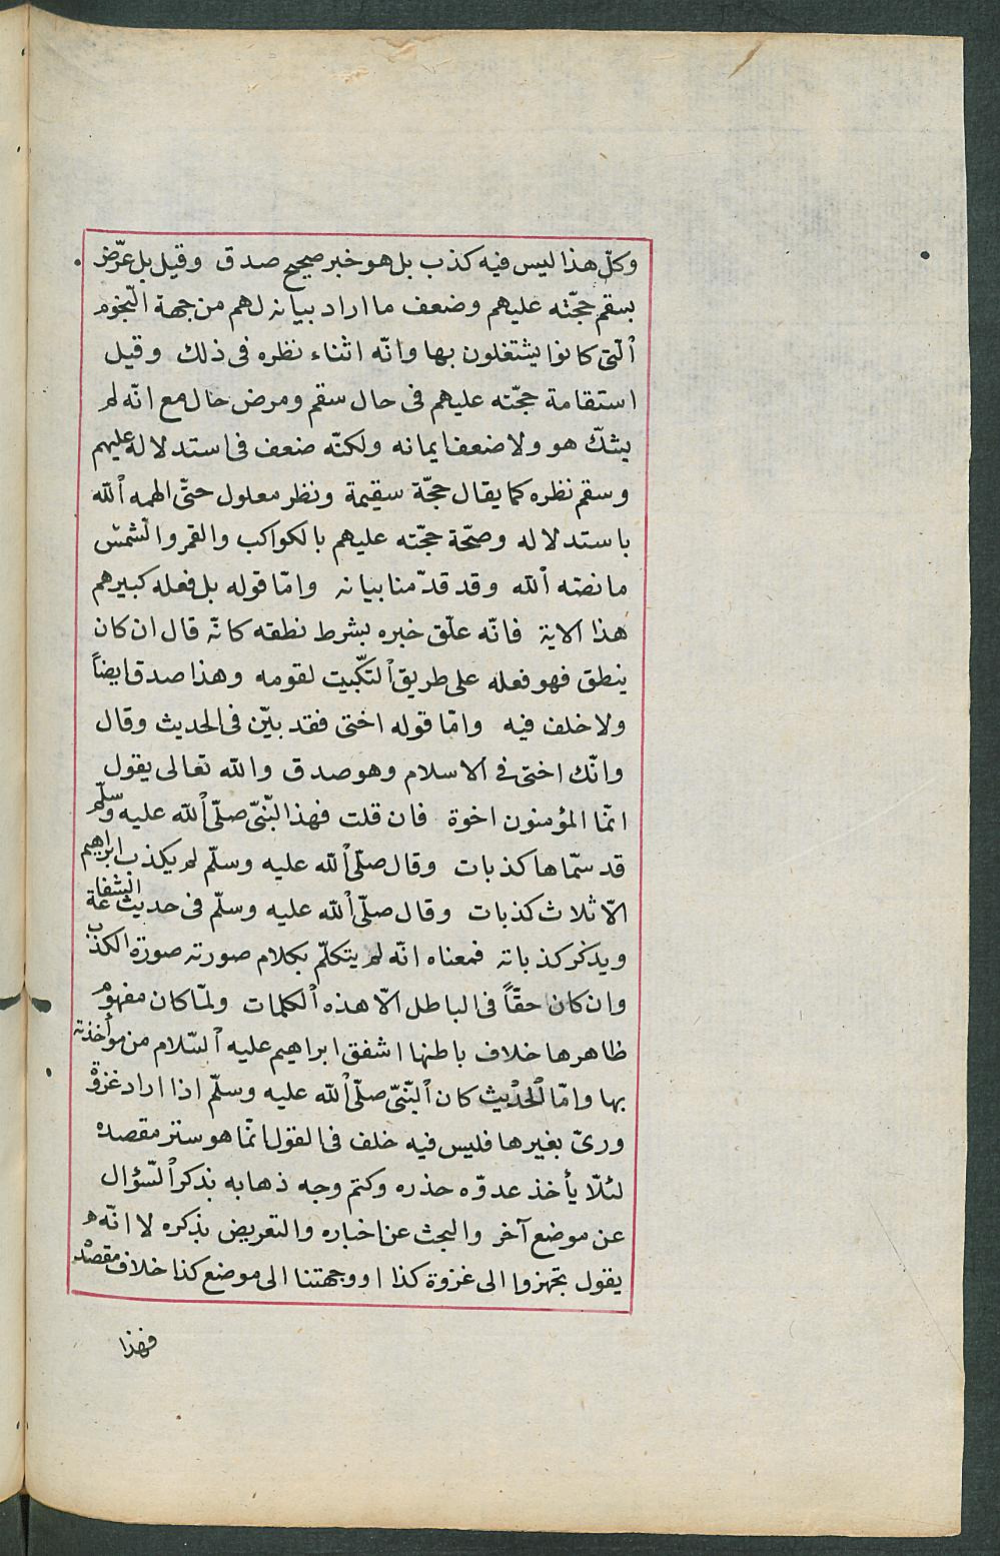 وكلّ هذا ليس فيه كذب بل هو خبر صحيح صدق وقيل بل عرّض
بسقم حجّته عليهم وضعف ما اراد بيانه لهم من جهة النّجوم
الّتى كانوا يشتغلون بها وانّه اثناء نظره فى ذلك وقيل
استقامة حجّته عليهم فى حال سقم ومرض حال مع انّه لم
يشكّ هو ولا ضعف ايمانه ولكنّه ضعف فى استدلاله عليهم
وسقم نظره كما يقال حجّة سقيمة ونظر معلول حتّى الهمه الله
باستدلاله وصحّة حجّته عليهم بالكواكب والقمر والشّمس
ما نصّه الله وقد قدّمنا بيانه وامّا قوله بل فعله كبيرهم
هذا الاية فانّه علّق خبره بشرط نطقه كانّه قال ان كان
ينطق فهو فعله على طريق التّكبيت لقومه وهذا صدق ايضاً
ولا خلف فيه وامّا قوله اختى فقد بيّن فى الحديث وقال
وانّك اختى فى الاسلام وهو صدق والله تعالى يقول
انّما المؤمنون اخوة فان قلت فهذا النّبىّ صلّى الله عليه وسلّم
قد سمّاها كذبات وقال صلّى الله عليه وسلّم لم يكذب ابراهيم
الّا ثلاث كذبات وقال صلّى الله عليه وسلّم فى حديث الشفاعة
ويذكر كذباته فمعناه انّه لم يتكلّم بكلام صورته صورة الكذب
وان كان حقّاً فى الباطل الّا هذه الكلمات ولمّا كان مفهوم
ظاهرها خلاف باطنها اشفق ابراهيم عليه السّلام من مواخذته
بها وامّا الحديث كان النّبىّ صلّى الله عليه وسلّم اذا اراد غزوة
ورىّ بغيرها فليس فيه خلف فى القول انّما هو ستر مقصده
لئلّا يأخذ عدوّه حذره وكتم وجه ذهابه بذكر السّؤال
عن موضع آخر والبحث عن اخباره والتعريض بذكره لا انّه
يقول تجهزوا الى غزوة كذا او وجهتنا الى موضع كذا خلاف مقصده
فهذا